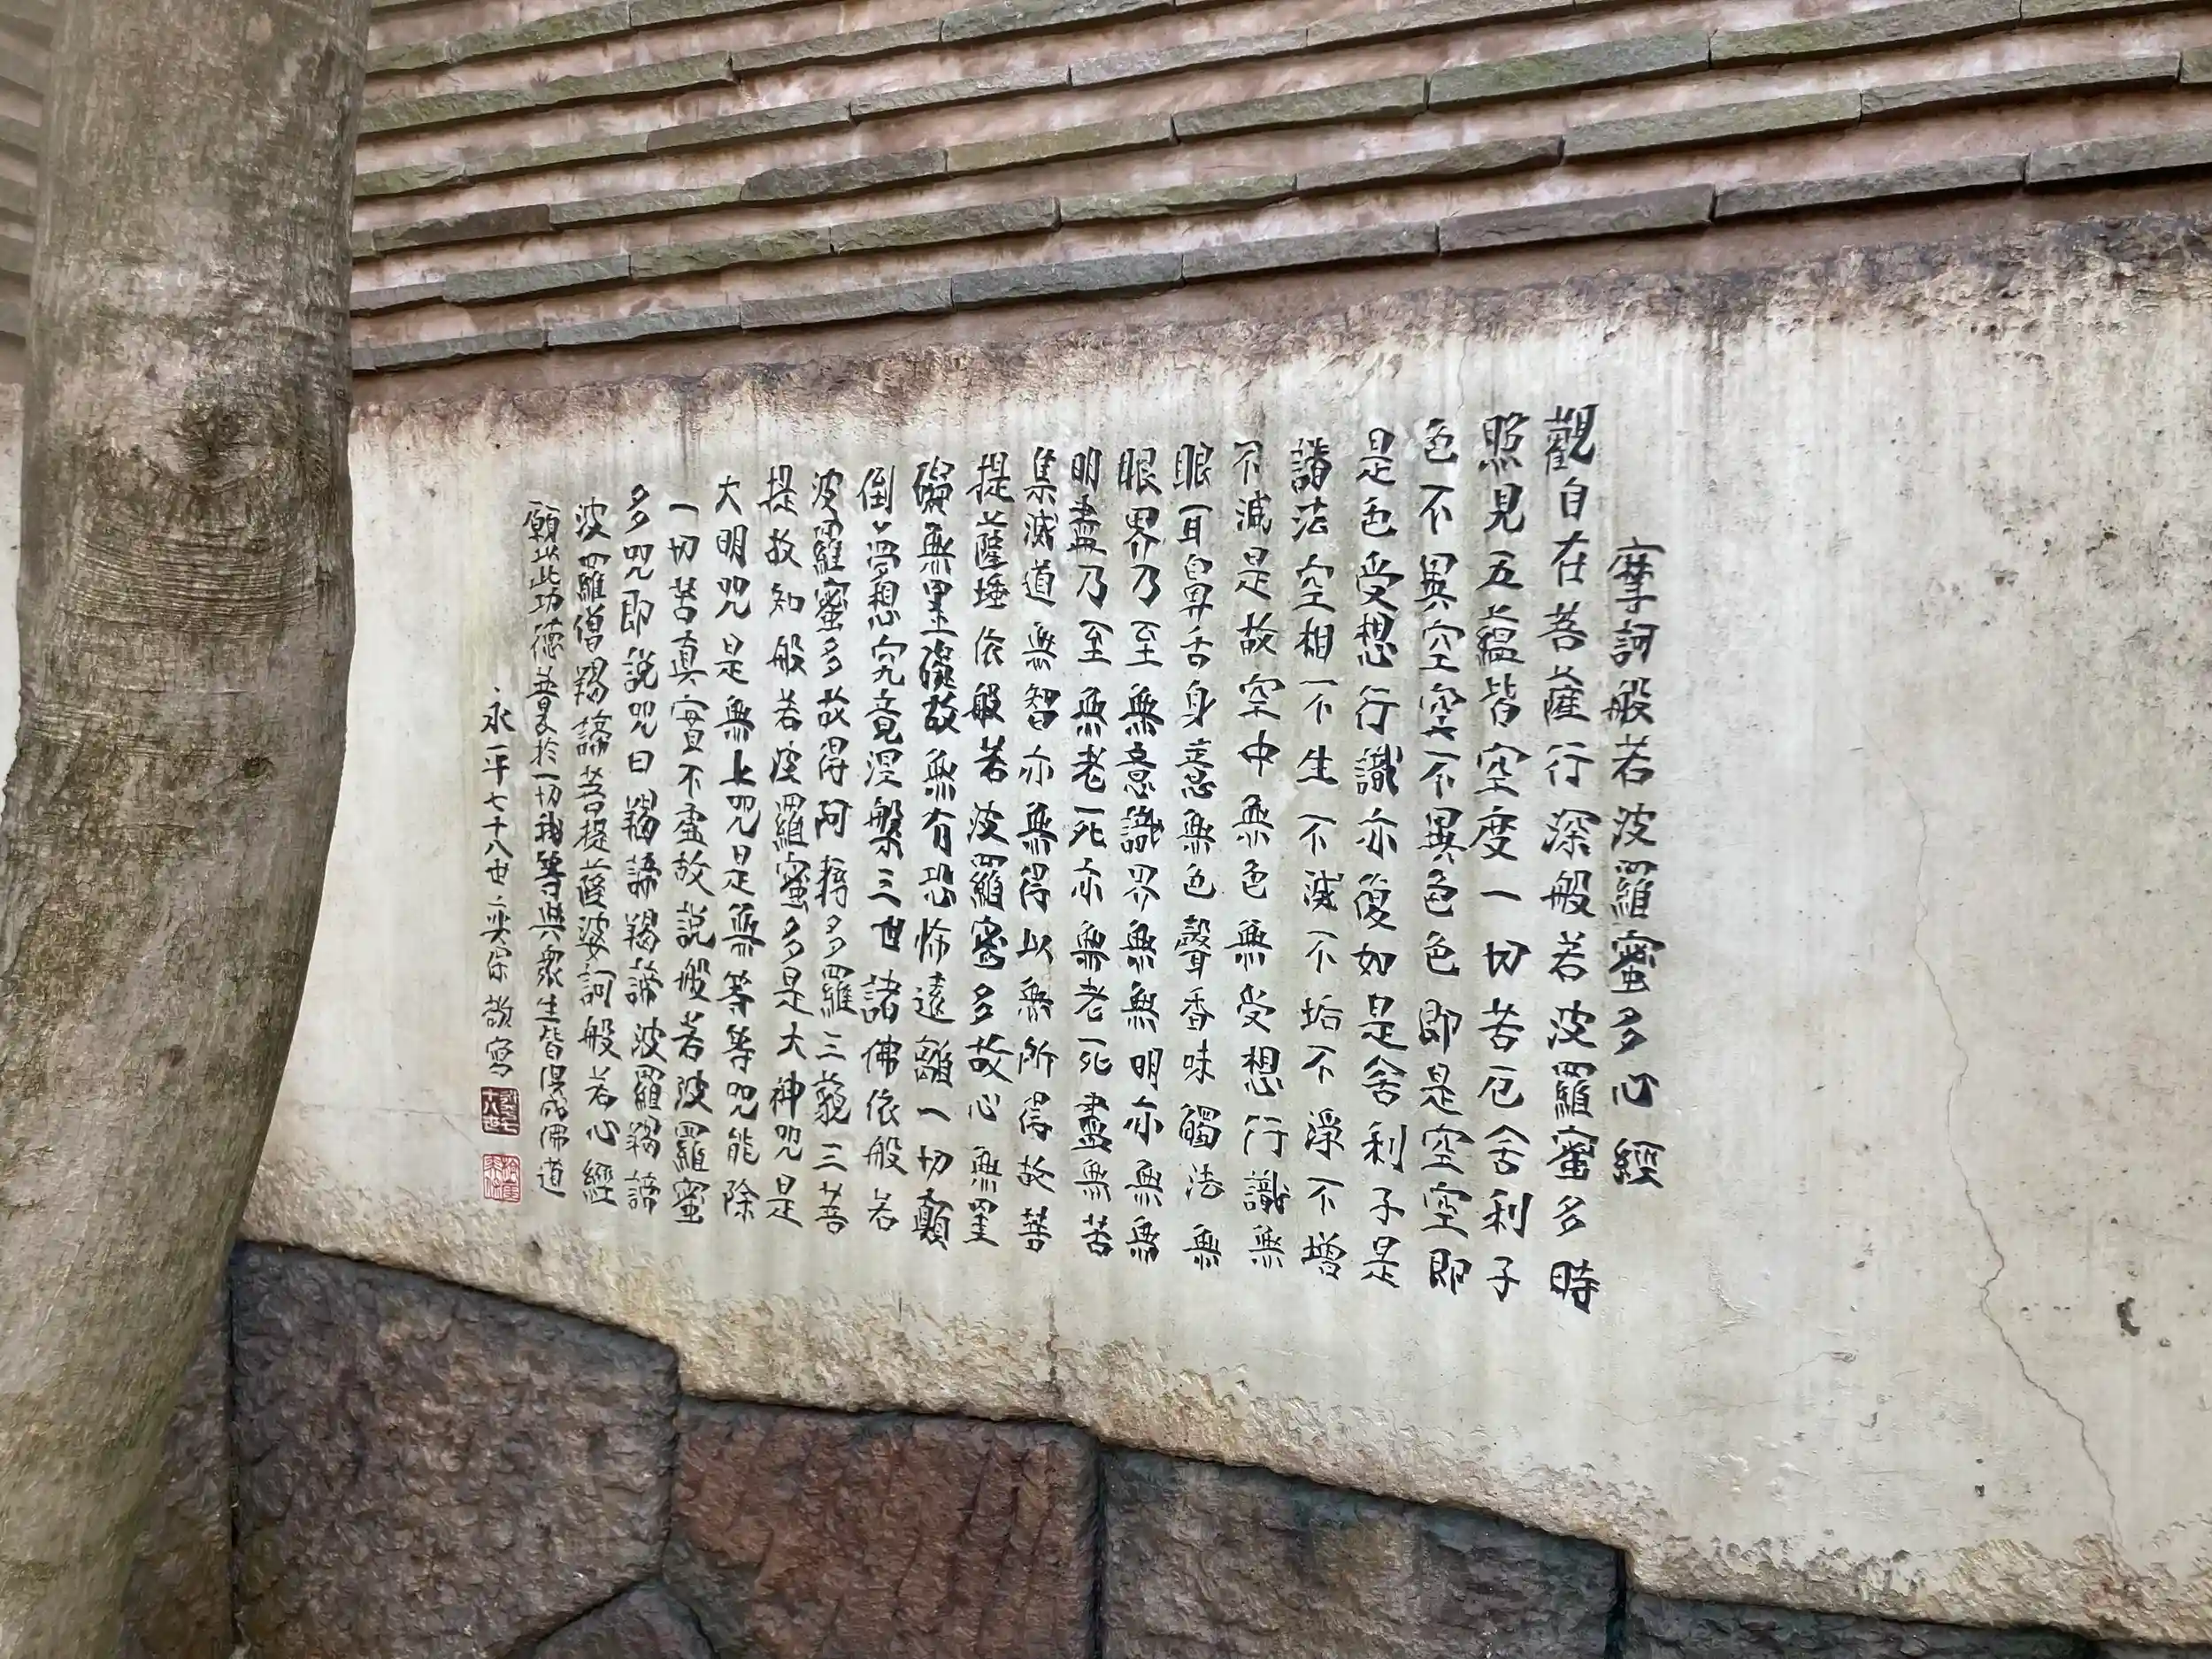 摩訶般若波羅蜜多心經
觀自在菩薩行深般若波羅蜜多時
照見五蘊皆空度一切苦厄舍利子
色不異空空不異色色即是空空即
是色受想行識亦復如是舍利子是
諸法空相不生不滅不垢不淨不增
不減是故空中無色無受想行識無
眼耳鼻舌身意無色聲香味觸法無
眼界乃至無意識界無無明亦無無
明盡乃至無老死亦無老死盡無苦
集滅道無智亦無得以無所得故菩
提薩埵依般若波羅蜜多故心無罣
礙無罣礙故無有恐怖遠離一切顛
倒夢想究竟涅槃三世諸佛依般若
波羅蜜多故得阿耨多羅三藐三菩
提故知般若波羅蜜多是大神咒是
大明咒是無上咒是無等等咒能除
一切苦真實不虛故說般若波羅蜜
多咒即說咒曰羯諦羯諦波羅羯諦
波羅僧羯諦菩提薩婆訶般若心經
願以此功德普及於一切我等與衆生皆俱成佛道
永平七十八世奕保敬寫